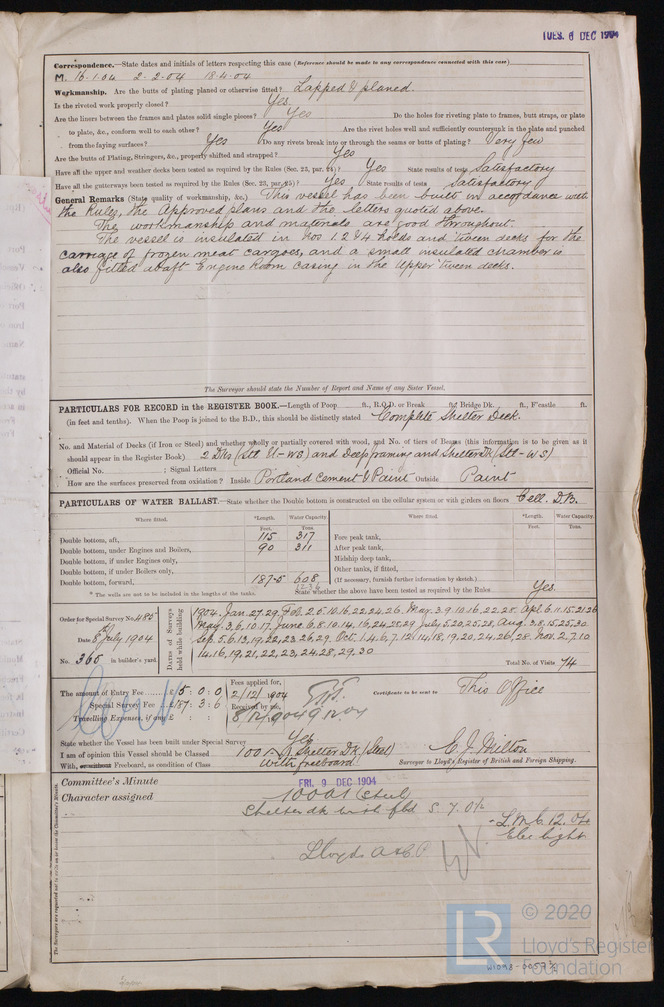 TUES. 6 DEC 1904
Correspondence.—State dates and initials of letters respecting this case (Reference should be made to any correspondence connected with this case)
M. 16.1.04 2-2-04 18.4.04
Workmanship. Are the butts of plating planed or otherwise fitted? Lapped & planed.
Is the riveted work properly closed? Yes
Are the liners between the frames and plates solid single pieces? Yes Do the holes for riveting plate to frames, butt straps, or plate
to plate, &c., conform well to each other? Yes Are the rivet holes well and sufficiently countersunk in the plate and punched
from the faying surfaces? Yes Do any rivets break into or through the seams or butts of plating? Very few
Are the butts of Plating, Stringers, &c., properly shifted and strapped? Yes
Have all the upper and weather decks been tested as required by the Rules (Sec. 23, par. 24)? Yes State results of tests Satisfactory
Have all the gutterways been tested as required by the Rules (Sec. 23, par. 25)? Yes State results of tests Satisfactory
General Remarks (State quality of workmanship, &c.) This vessel has been built in accordance with
the Rules, the Approved plans and the letters quoted above.
The workmanship and materials are good throughout.
The vessel is insulated in Nos 1.2 & 4 holds and 'tween decks for the
carriage of frozen meat cargoes, and a small insulated chamber is
also fitted abaft Engine Room Casing in the Upper 'tween decks.
The Surveyor should state the Number of Report and Name of any Sister Vessel.
PARTICULARS FOR RECORD in the REGISTER BOOK.—Length of Poop ft., R.Q.D. or Break ft. Bridge Dk. ft., F'castle ft.
(in feet and tenths). When the Poop is joined to the B.D., this should be distinctly stated Complete Shelter Deck.
No. and Material of Decks (if Iron or Steel) and whether wholly or partially covered with wood, and No. of tiers of Beams (this information is to be given as it
should appear in the Register Book) 2 Dks (Stl U-WS) and Deep framing and Shelter Dk (Stl-WS)
Official No. ; Signal Letters
How are the surfaces preserved from oxidation? Inside Portland Cement & Paint Outside Paint
PARTICULARS OF WATER BALLAST.—State whether the Double bottom is constructed on the cellular system or with girders on floors Cell. D.B.
Where fitted. *Length. Water Capacity. Where fitted. *Length. Water Capacity.
Feet. Tons. Feet. Tons.
Double bottom, aft, 115 317 Fore peak tank,
Double bottom, under Engines and Boilers, 90 311 After peak tank,
Double bottom, if under Engines only, Midship deep tank,
Double bottom, if under Boilers only, Other tanks, if fitted,
Double bottom, forward, 187-5 608 (If necessary, furnish further information by sketch.)
1236
* The wells are not to be included in the lengths of the tanks. State whether the above have been tested as required by the Rules Yes.
Order for Special Survey No. 485
Date 8th July 1904
No. 365 in builder's yard.
Dates of Surveys held while building
1904. Jan. 27.29. Feb. 2.5.10.16.22.24.26. Mar. 3.9.10.16.22.28. Apl. 6.11.15.21.26
May. 3.6.10.17. June. 6.8.10.14.16.24.28.29 July. 5.20.25.28. Aug. 3.8.15.25.30
Sep. 5.6.13.19.22.23.26.29. Oct. 1.4.6.7.12.14.18.19.20.24.26.28. Nov. 2.7.10
14.16.19.21.22.23.24.28.29.30
Total No. of Visits 74
The amount of Entry Fee £ 5 : 0 : 0 Fees applied for,
Special Survey Fee £ 187 : 3 : 6 2/12/1904
Travelling Expenses, if any £ : : Received by me,
8/12/1904 9.12.04
Certificate to be sent to This Office
State whether the Vessel has been built under Special Survey Yes
I am of opinion this Vessel should be Classed 100A1 Shelter Dk (Steel)
With, or without Freeboard, as condition of Class With freeboard
E. J. Milton
Surveyor to Lloyd's Register of British and Foreign Shipping.
Committee's Minute FRI. 9 DEC 1904
Character assigned 100A1 Steel
Shelter dk with fbd S. 7. 0½
L.M.C. 12.04
Elec light
Lloyds A & C P
The Surveyors are requested not to write on or below the Committee's Minute.
© 2020
LR Lloyd's Register
Foundation